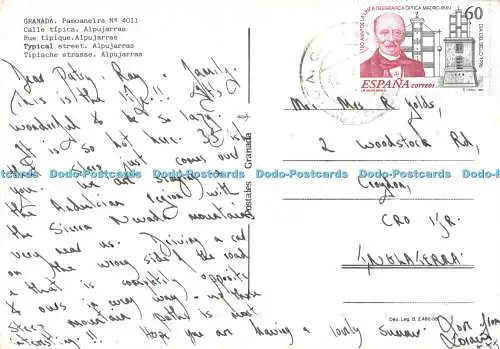 GRANADA. Pasoaneira Nº 4011
Calle típica. Alpujarras
Rue tipique. Alpujarras
Typical street. Alpujarras
Tipische strasse. Alpujarras
Dear Patsy, Ray + family.
This is the life!!! It's
wonderful & so lazy.
It is so hot here. 33 is
sleep just comes over
you. We are staying in
the Andalucian region with
the Sierra Nevada mountains
very near us. Driving a car
on the wrong side of the road
+ that is completely opposite
& ours in every way - up those
steep mountain paths is most
interesting!!! Hope you are having a lovely summer.
Love from
Postales Granada
150 ANIV DE LA LINEA TELEGRAFICA OPTICA MADRID-IRUN
60
DIA DEL SELLO 1996
ESPAÑA correos
Mr. Mrs R
2 Woodstock Rd,
Croydon,
CRO 1JR.
INGLATERRA.
Dep. Leg. B.
Dodo-Postcards Dodo-Postcards Dodo-Postcards Dodo-Postcards Dodo-Postcards